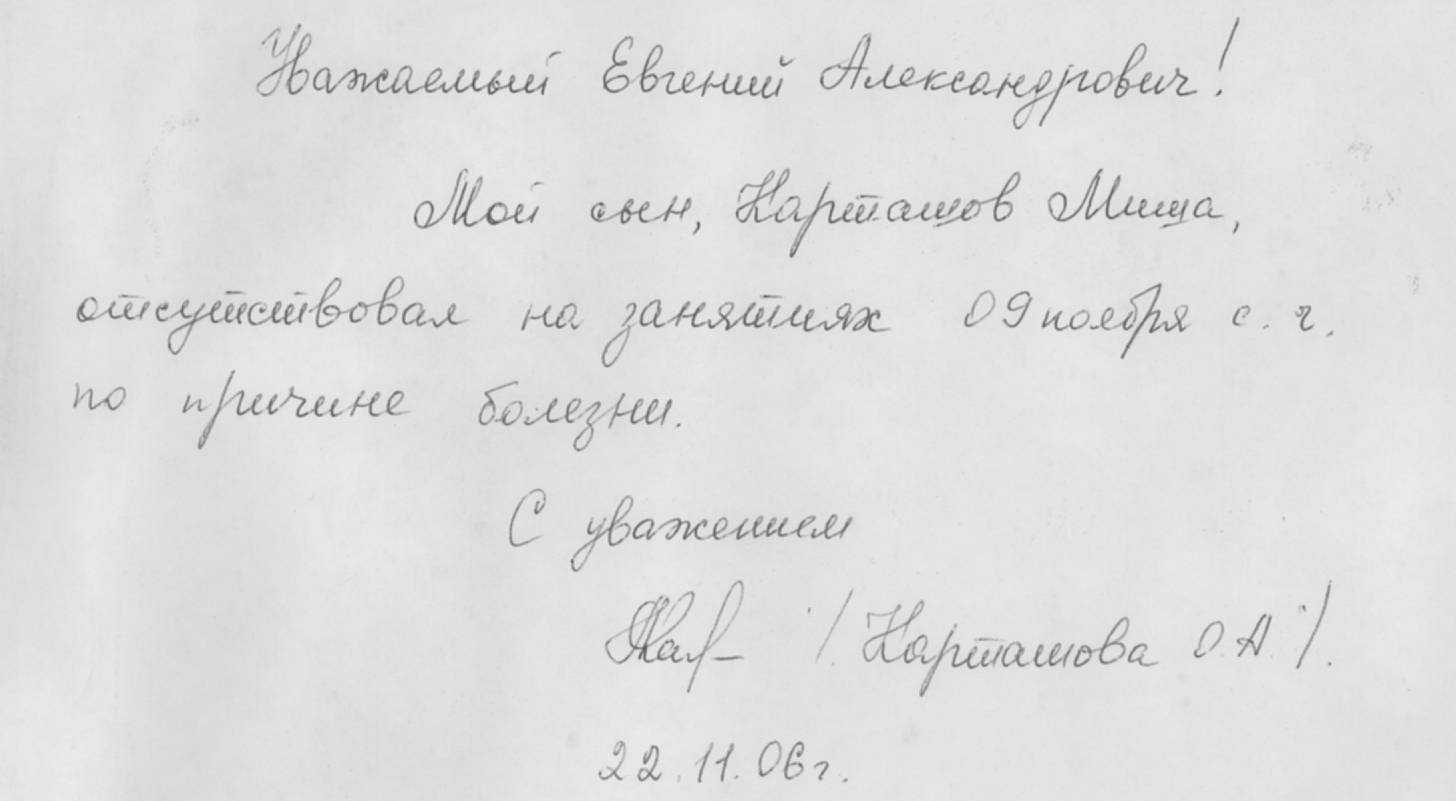 Уважаемый Евгений Александрович!
Мой сын, Карташов Миша,
отсутствовал на занятиях 09 ноября с. г.
по причине болезни.
С уважением
/. Карташова О.А. /.
22.11.06г.